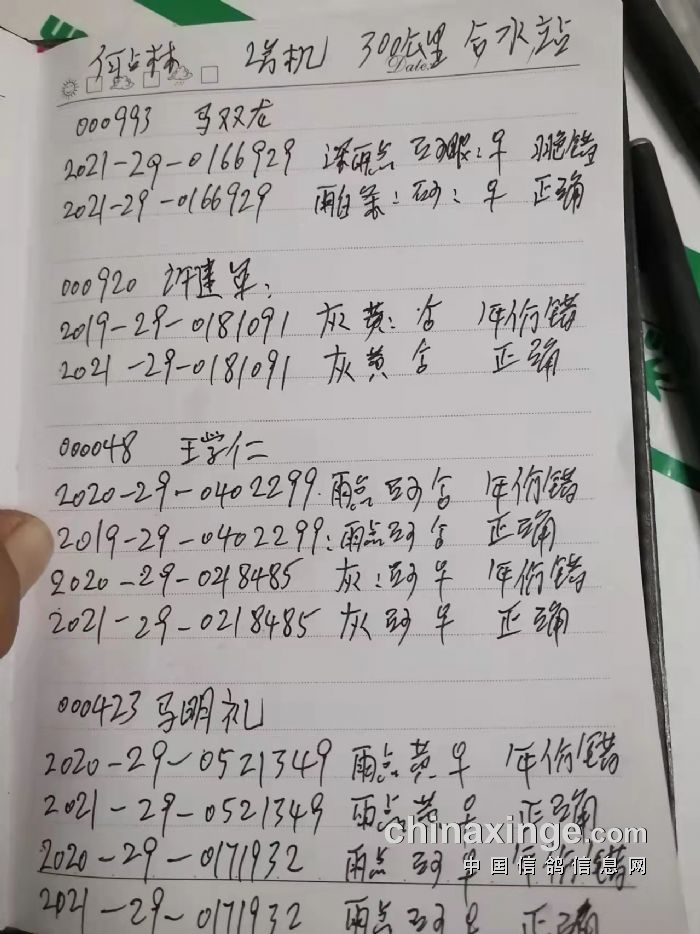 何占林 2号机 300公里 合水站
Date.
000993 马双龙
2021-29-0166929 深雨点 砂眼:♀ 羽色错
2021-29-0166929 雨白条:砂:♀ 正确
000920 许建军:
2019-29-0181091 灰黄:♂ 年份错
2021-29-0181091 灰黄♂ 正确
000048 王学仁
2020-29-0402299.雨点砂♂ 年份错
2019-29-0402299:雨点砂♂ 正确
2020-29-0218485 灰:砂♀ 年份错
2021-29-0218485 灰砂♀ 正确
000423 马明礼
2020-29-0521349 雨点黄♀ 年份错
2021-29-0521349 雨点黄♀ 正确
2020-29-0171932 雨点砂♀ 年份错
2021-29-0171932 雨点砂♀ 正确
chinaxinge.com
中国信鸽信息网